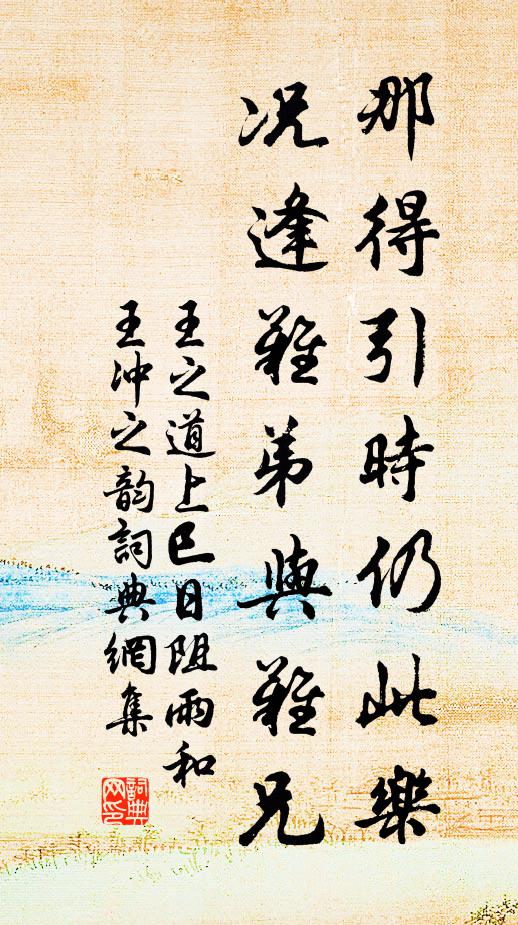 那得引時仍此樂
况逢難弟與難兄
王之道上巳日阻雨和
王冲之韵詞典網集
詞典網印